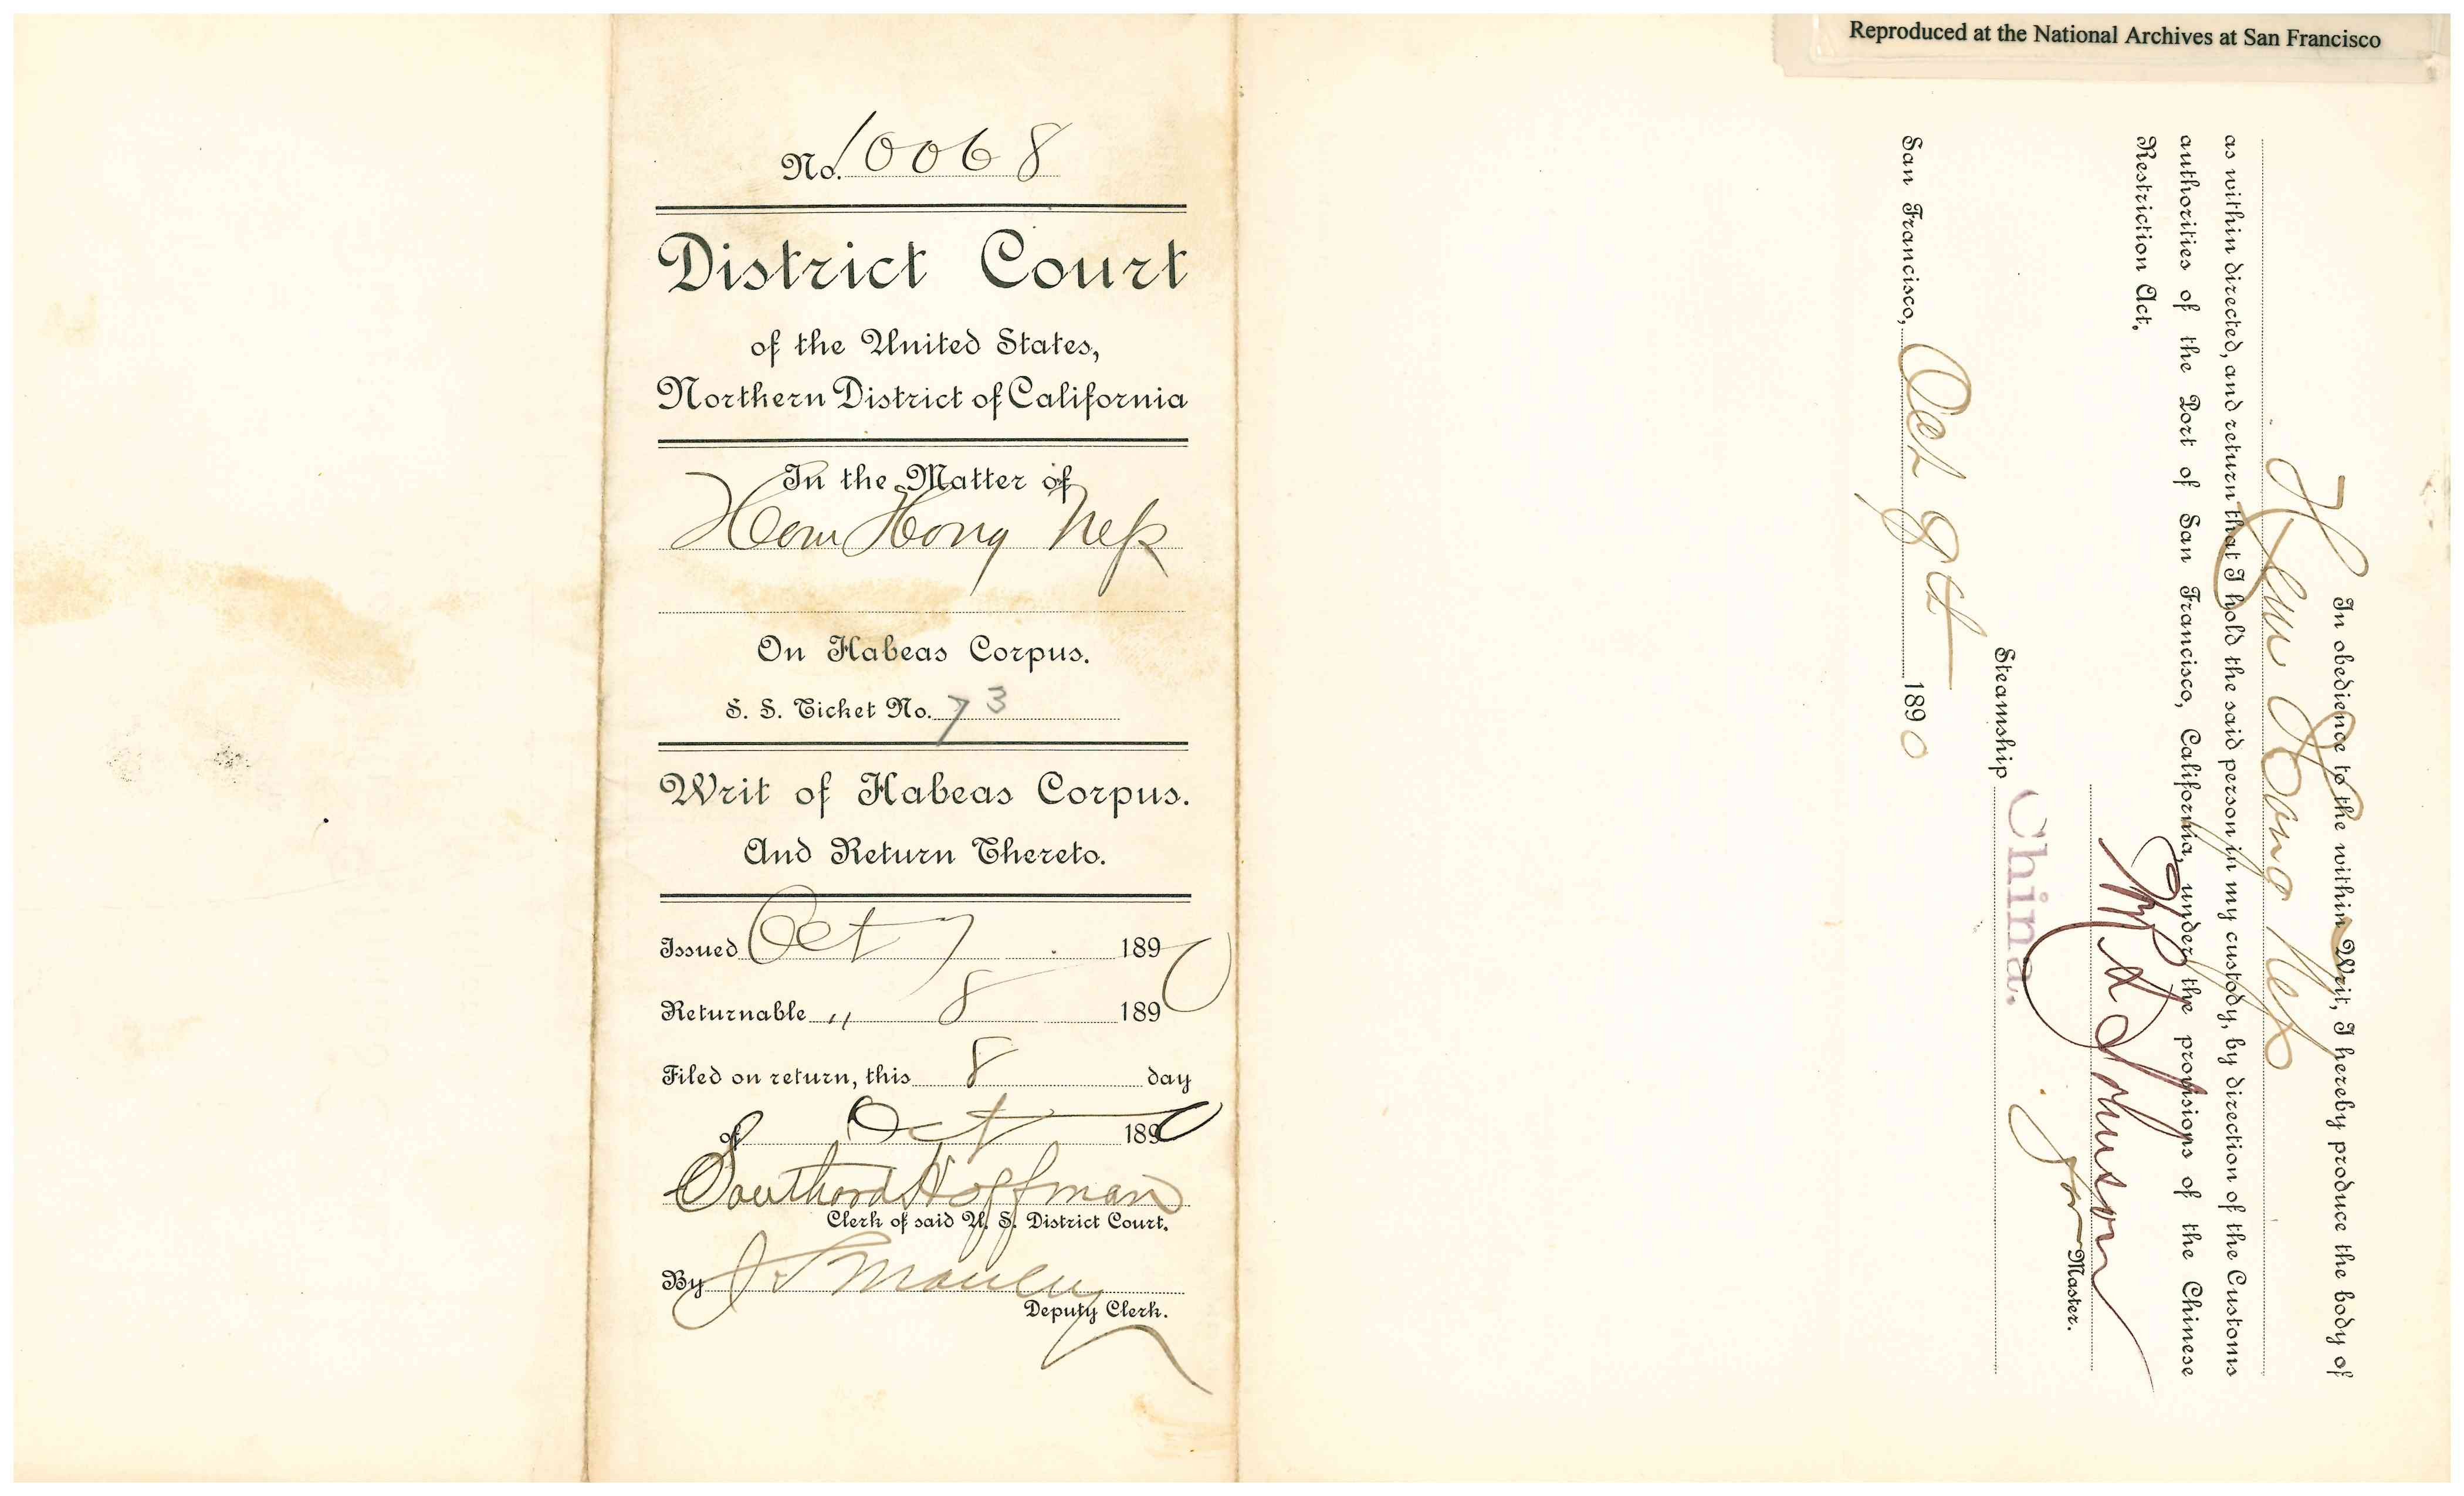 Reproduced at the National Archives at San Francisco
No. 10068
District Court
of the United States,
Northern District of California
In the Matter of
Hem Hong Nep
On Habeas Corpus.
S. S. Ticket No. 73
Writ of Habeas Corpus.
And Return Thereto.
Issued Oct 7 1890
Returnable " 8 189
Filed on return, this 8 day
of Oct 1890
Southard Hoffman
Clerk of said U. S. District Court.
By
Deputy Clerk.
In obedience to the within Writ, I hereby produce the body of
Hem Hong Nep
as within directed, and return that I hold the said person in my custody, by direction of the Customs
authorities of the Port of San Francisco, California, under the provisions of the Chinese
Restriction Act.
Johnson
for Master.
Steamship China.
San Francisco, Oct 8th 1890